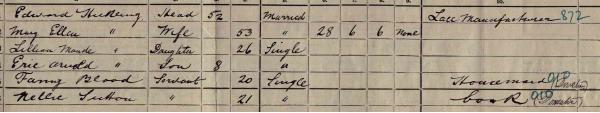 Edward Hickling Head 52 Married Lace Manufacturer 872
Mary Ellen " Wife 53 " 28 6 6 None
Lillian Maude " Daughter 26 Single
Eric Arnold " Son 8 "
Fanny Blood Servant 20 Single Housemaid 010 (Domestic)
Nellie Sutton " 21 " Cook 010 (Domestic)